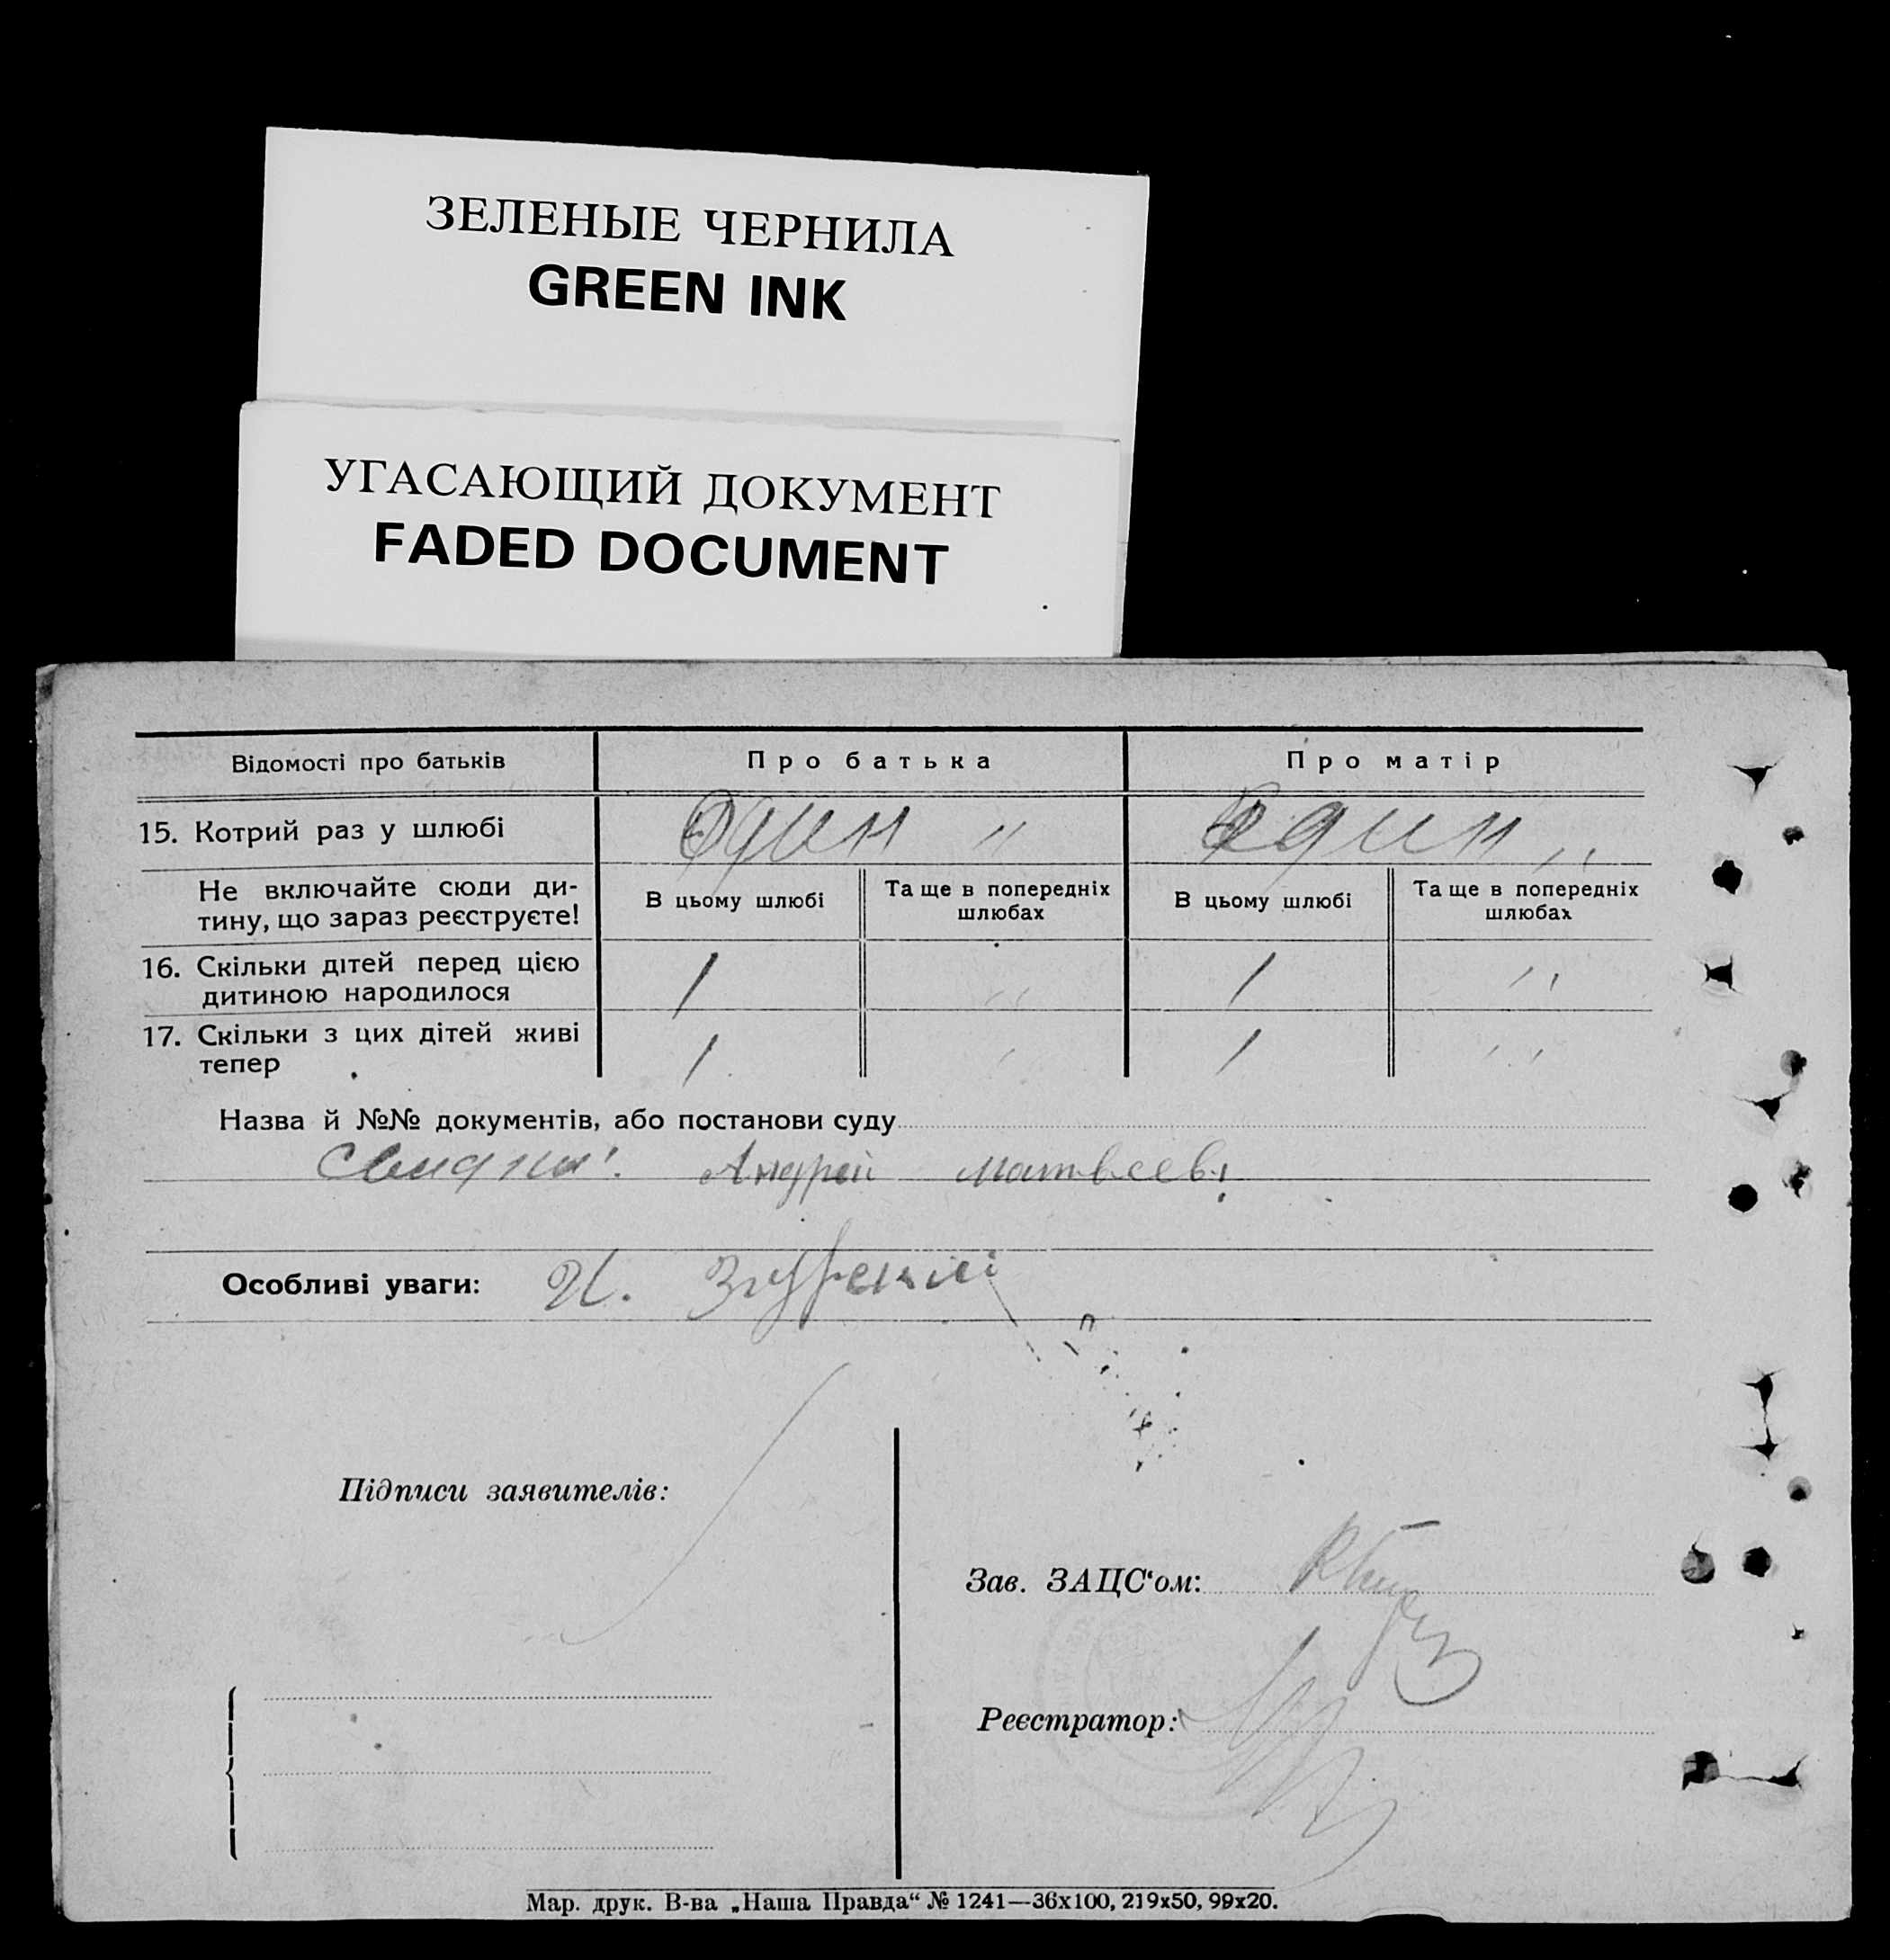 ЗЕЛЕНЫЕ ЧЕРНИЛА
GREEN INK
УГАСАЮЩИЙ ДОКУМЕНТ
FADED DOCUMENT
Відомості про батьків Про батька Про матір
15. Котрий раз у шлюбі Один " Один "
Не включайте сюди ди-
тину, що зараз реєструєте!
В цьому шлюбі Та ще в попередніх шлюбах В цьому шлюбі Та ще в попередніх шлюбах
16. Скільки дітей перед цією
дитиною народилося 1 " 1 "
17. Скільки з цих дітей живі
тепер 1 " 1 "
Назва й №№ документів, або постанови суду
Андрей Матвеев
Особливі уваги: И.
Підписи заявителів:
Зав. ЗАЦС'ом:
Реєстратор:
Мар. друк. В-ва „Наша Правда“ № 1241—36х100, 219х50, 99х20.